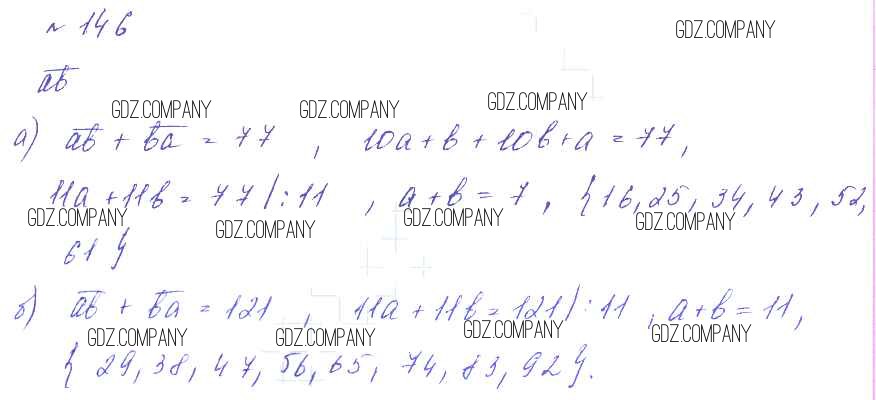 № 146
GDZ.COMPANY
ab
GDZ.COMPANY GDZ.COMPANY GDZ.COMPANY
а) ab + ba = 77 , 10a + b + 10b + a = 77,
11a + 11b = 77 | : 11 , a + b = 7 , { 16, 25, 34, 43, 52,
GDZ.COMPANY GDZ.COMPANY GDZ.COMPANY GDZ.COMPANY
61 }
б) ab + ba = 121 , 11a + 11b = 121 | : 11 , a + b = 11,
GDZ.COMPANY GDZ.COMPANY GDZ.COMPANY GDZ.COMPANY
{ 29, 38, 47, 56, 65, 74, 83, 92 }.